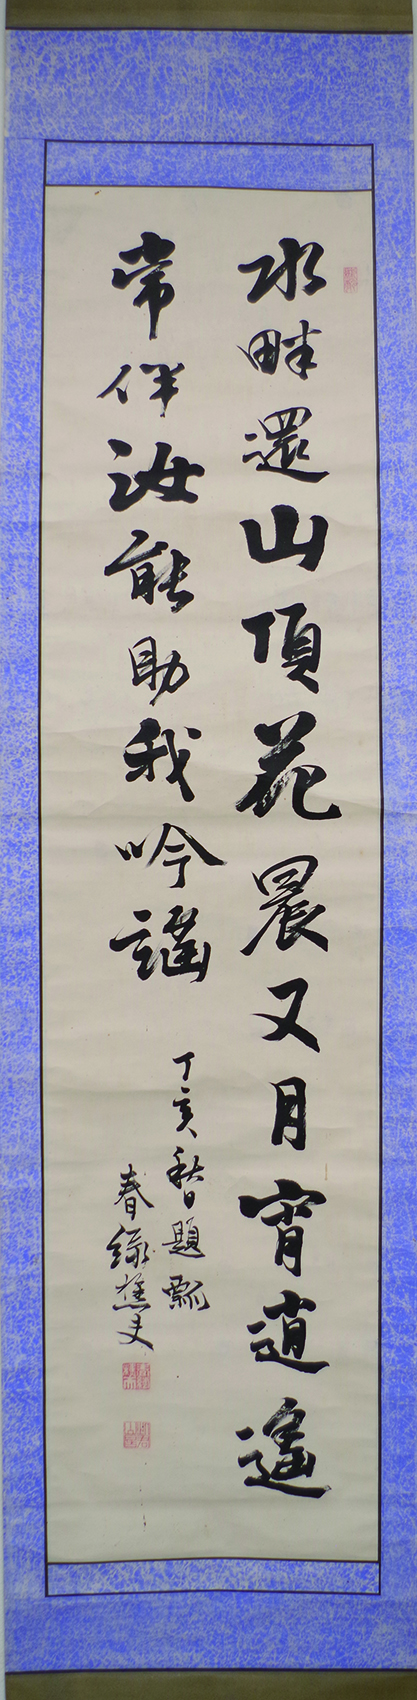 水畔還山頂花晨又月宵逍遙
常伴汝能助我吟謠
丁亥秋日題瓢
春綠樵夫